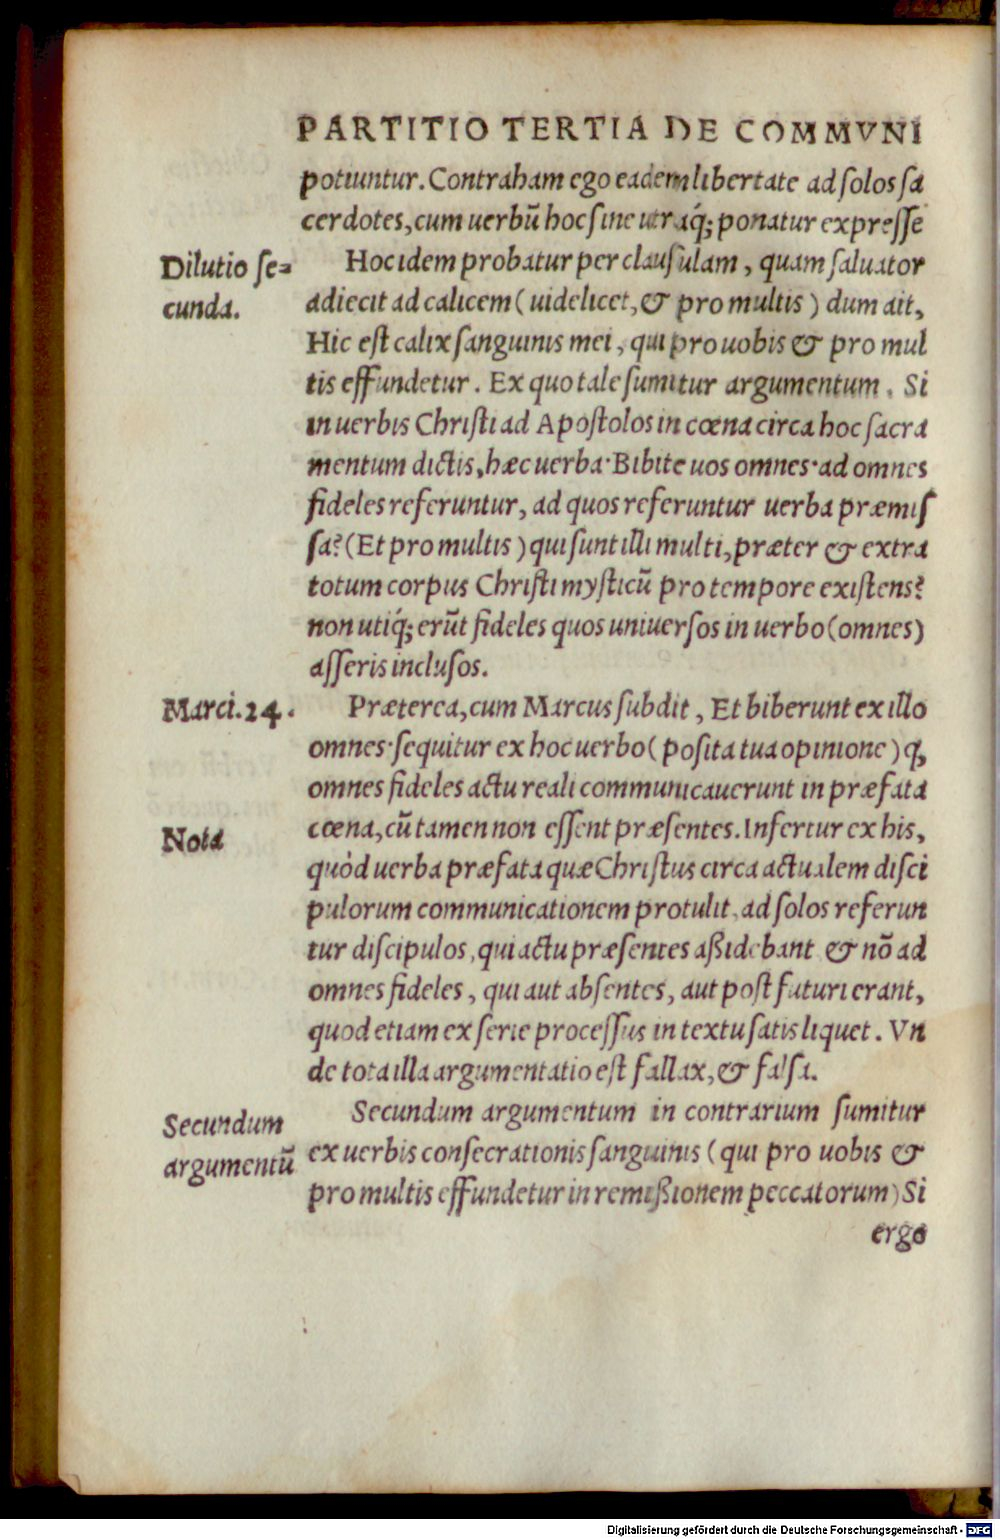 PARTITIO TERTIA DE COMMVNI
potiuntur. Contraham ego eadem libertate ad ſolos ſa
cerdotes, cum uerbũ hoc ſine utraq́; ponatur expreſſe
Dilutio ſe=
cunda.
Hoc idem probatur per clauſulam, quam ſaluator
adiecit ad calicem (uidelicet, & pro multis) dum ait,
Hic eſt calix ſanguinis mei, qui pro uobis & pro mul
tis effundetur. Ex quo tale ſumitur argumentum. Si
in uerbis Chriſti ad Apoſtolos in cœna circa hoc ſacra
mentum dictis, hæc uerba·Bibite uos omnes·ad omnes
fideles referuntur, ad quos referuntur uerba præmiſ
ſa? (Et pro multis) qui ſunt illi multi, præter & extra
totum corpus Chriſti myſticũ pro tempore exiſtens?
non utiq́; erũt fideles quos uniuerſos in uerbo (omnes)
aſſeris incluſos.
Marci. 24.
Præterea, cum Marcus ſubdit, Et biberunt ex illo
omnes·ſequitur ex hoc uerbo (poſita tua opinione) ꝙ
omnes fideles actu reali communicauerunt in præfata
cœna, cũ tamen non eſſent præſentes. Infertur ex his,
Nota
quòd uerba præfata quæ Chriſtus circa actualem diſci
pulorum communicationem protulit, ad ſolos referun
tur diſcipulos, qui actu præſentes aßidebant & nõ ad
omnes fideles, qui aut abſentes, aut poſt futuri erant,
quod etiam ex ſerie proceſſus in textu ſatis liquet. Vn
de tota illa argumentatio eſt fallax, & falſa.
Secundum
argumentũ
Secundum argumentum in contrarium ſumitur
ex uerbis conſecrationis ſanguinis (qui pro uobis &
pro multis effundetur in remißionem peccatorum) Si
ergo
Digitalisierung gefördert durch die Deutsche Forschungsgemeinschaft - DFG